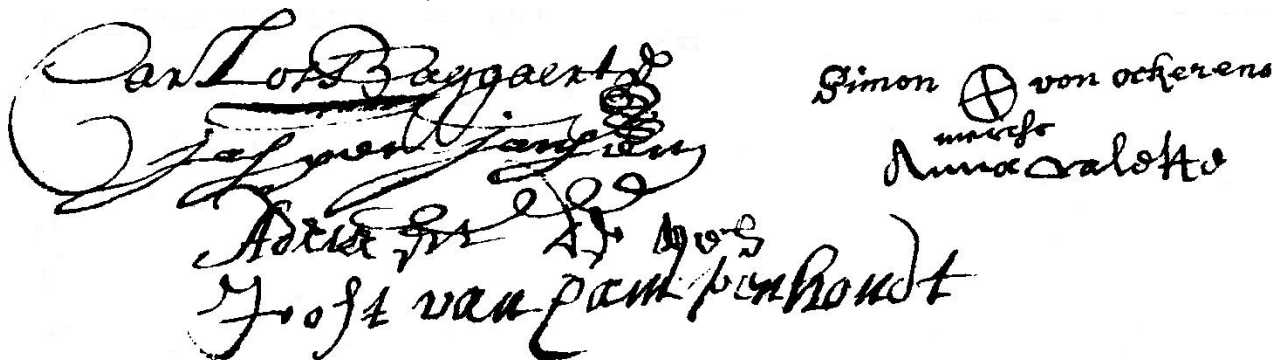 Carlos Baggaert
Jasper Janssen
Adriaen
Joost van Campenhoudt
Simon von ockerens
merche
Anna valette